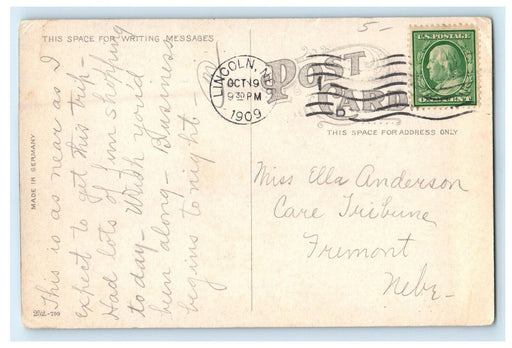 THIS SPACE FOR WRITING MESSAGES
5-
U.S. POSTAGE
ONE CENT
LINCOLN, NEB.
OCT 19
9 30 PM
1909
D
POST
CARD
THIS SPACE FOR ADDRESS ONLY
MADE IN GERMANY
This is as near as I
expect to get this trip-
Had lots of fun shopping
to day - Wish you'd
been along - Business
begins tonight.
M
Miss Ella Anderson
Care Tribune
Fremont
Nebr-